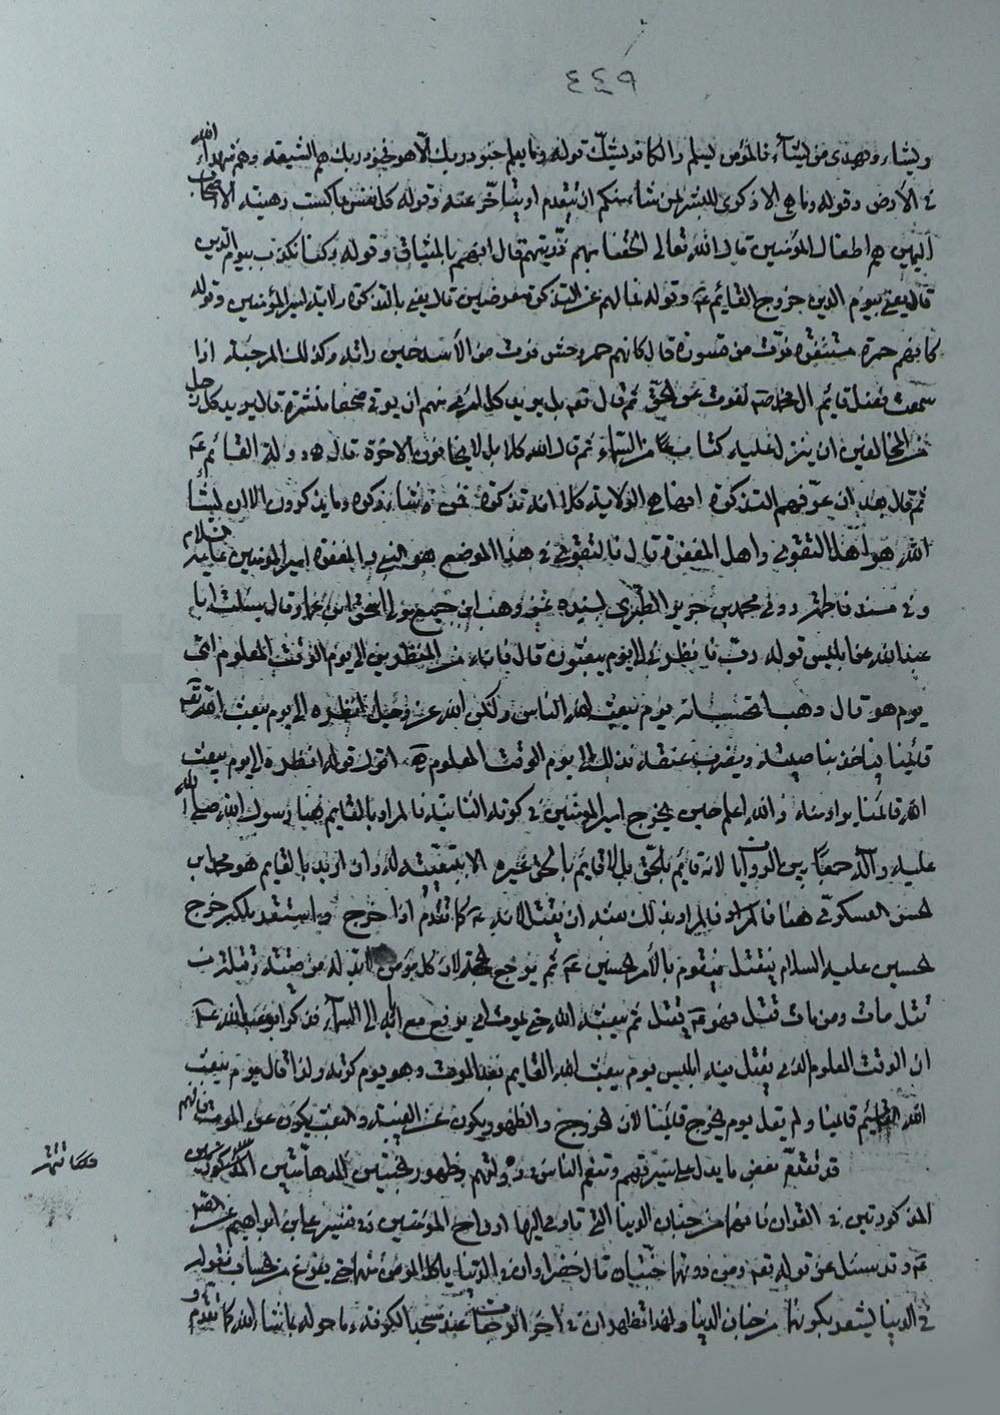 ٤٤٩
ويشاء ويهدى من يشاء فالمؤمن يسلم والكافر يشك قوله وما يعلم جنود ربك الا هو فجنود ربك هم الشيعة وهم شهداء الله
فى الأرض وقوله وما هى الا ذكرى للبشر لمن شاء منكم ان يتقدم او يتأخر عنه وقوله كل نفس بما كسبت رهينة الا اصحاب
اليمين هم اطفال المؤمنين قال الله تعالى الحقنا بهم ذريتهم قال انهم بالميثاق وقوله وكنا نكذب بيوم الدين
قال يعنى بيوم الدين خروج القائم عه وقوله فما لهم عن التذكرة معرضين قال يعنى بالتذكرة ولاية امير المؤمنين وقوله
كانهم حمر مستنفرة فرت من قسورة قال كانهم حمر وحش فرت من الأسد حين راته وكذلك المرجئة اذا
سمعت بفضل قائم ال محمد صه نفرت عن الحق ثم قال تعه بل يريد كل امرء منهم ان يوتى صحفا منشرة قال يريد كل رجل
من المخالفين ان ينزل عليه كتابا من السماء ثم قال الله كلا بل لا يخافون الاخرة قال هو دولة القائم عه
ثم قال بعد ان عرفهم التذكرة انها هى الولاية كلا انه تذكرة فمن شاء ذكره وما يذكرون الا ان يشاء
الله هو اهل التقوى واهل المغفرة قال فالتقوى فى هذا الموضع هو النبى والمغفرة امير المؤمنين عليه السلام
وفى مسند فاطمة روى محمد بن جرير الطبرى بسنده عن وهب ابن جميع مولى اسحق ابن عمار قال سئلت ابا
عبد الله عن ابليس قوله رب فانظرنى الى يوم يبعثون قال فانك من المنظرين الى يوم الوقت المعلوم اى
يوم هو قال وهب اتحسب انه يوم يبعث الله الناس ولكن الله عز وجل انظره الى يوم يبعث الله تعه
قائمنا فياخذ بناصيته ويضرب عنقه فذلك الى يوم الوقت المعلوم اقول قوله انظره الى يوم يبعث
الله قائمنا يراد منه والله اعلم حين يخرج امير المؤمنين فى كرته الثانية فالمراد بالقايم هنا رسول الله صلى الله
عليه وآله جمعا بين الروايات لانه قائم بالحق بل لا قايم بالحق غيره الا بتبعيته له وان اريد بالقايم هو محمد بن
الحسن العسكرى هنا فالمراد بذلك بعد ان يقتل لانه عه كما تقدم اذا خرج واستقر ملكه خرج
الحسين عليه السلام فيقتل فيقوم بالأمر الحسين عه ثم يرجع الحجة لان كل مؤمن لابد له من ميتة وقتلة من
قتل مات ومن مات قتل فهو عه يقتل ثم يبعثه الله حتى يموت اى يرفع مع ابائه الى السماء فذكر ابو عبد الله عه
ان الوقت المعلوم الذى يقتل فيه ابليس يوم يبعث الله القايم بعد الموت وهو يوم كرته ولذا قال يوم يبعث
الله قائمنا ولم يقل يوم يخرج قائمنا لان الخروج والظهور يكون عن الغيبة والبعث يكون عن الموت
قد تقدم بعض ما يدل على سيرتهم وتنعم الناس فى دولتهم وظهور الجنتين المدهامتين
المذكورتين فى القران فانهما من جنان الدنيا التى تاوى اليها ارواح المؤمنين فى تفسير على بن ابراهيم عن الصه
عه وقد سئل عن قوله تعه ومن دونهما جنتان قال خضراوان فى الدنيا ياكل المؤمن منهما حتى يفرغ من الحساب فقوله
فى الدنيا يشعر بكونهما من جنان الدنيا ولهذا تظهران فى اخر الرجعات عند مسجد الكوفة وما حوله بما شاء الله كما تقدم